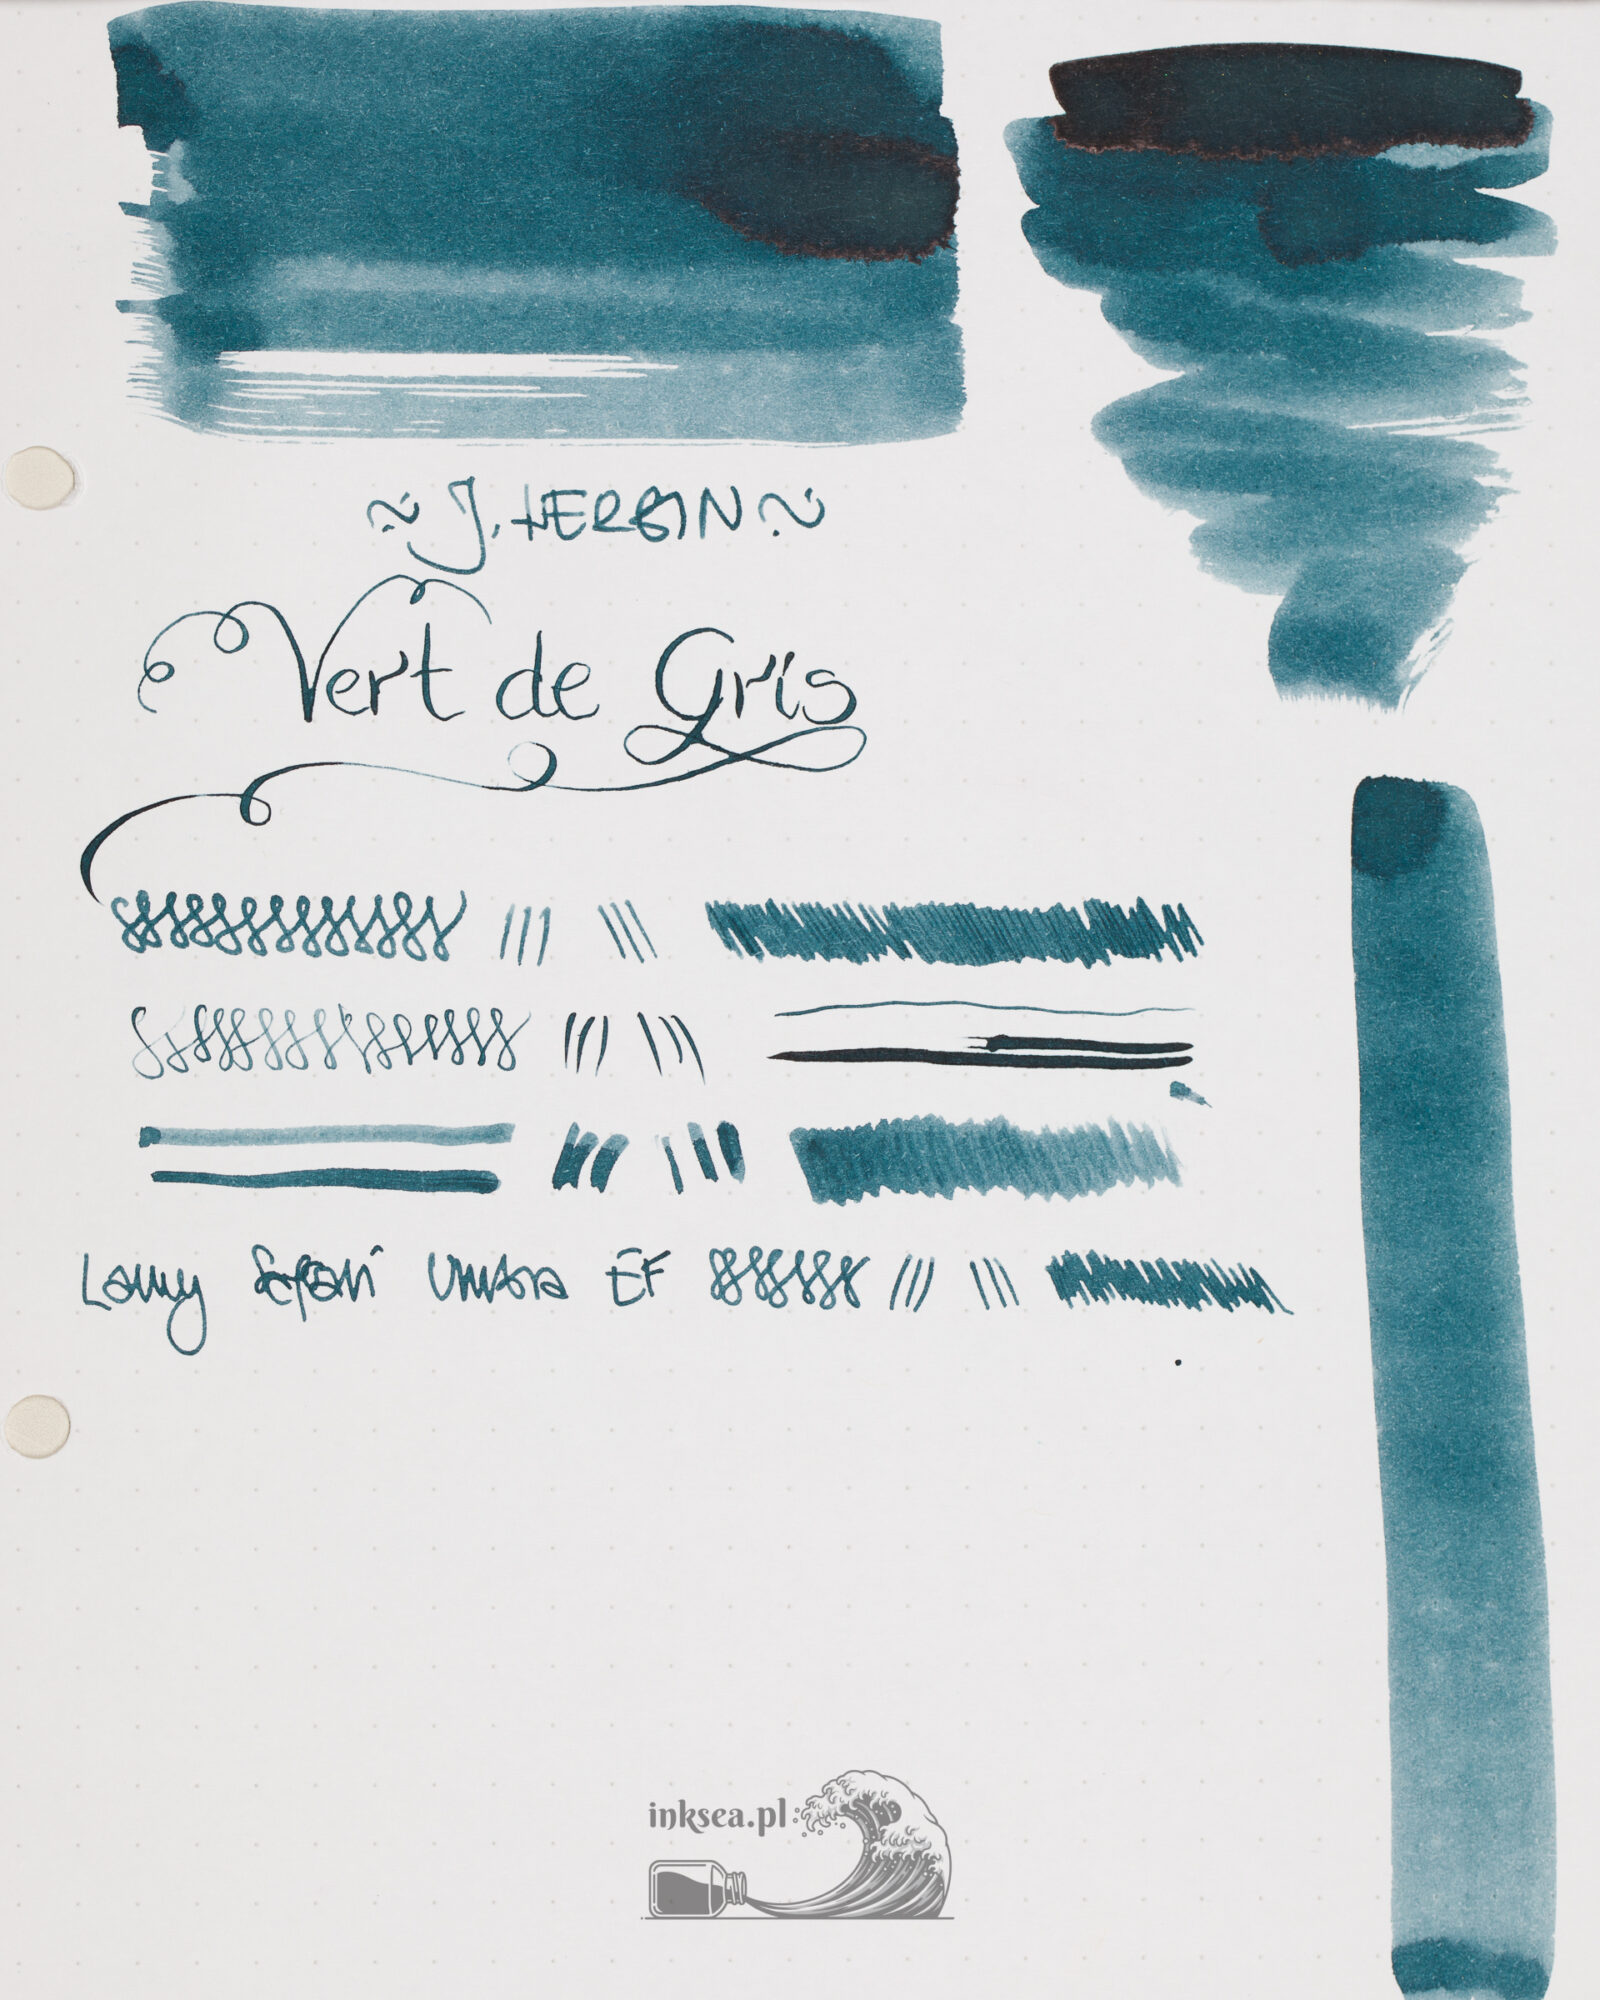 ~ J. HERBIN ~
Vert de Gris
Lamy Safari Umbra EF
inksea.pl